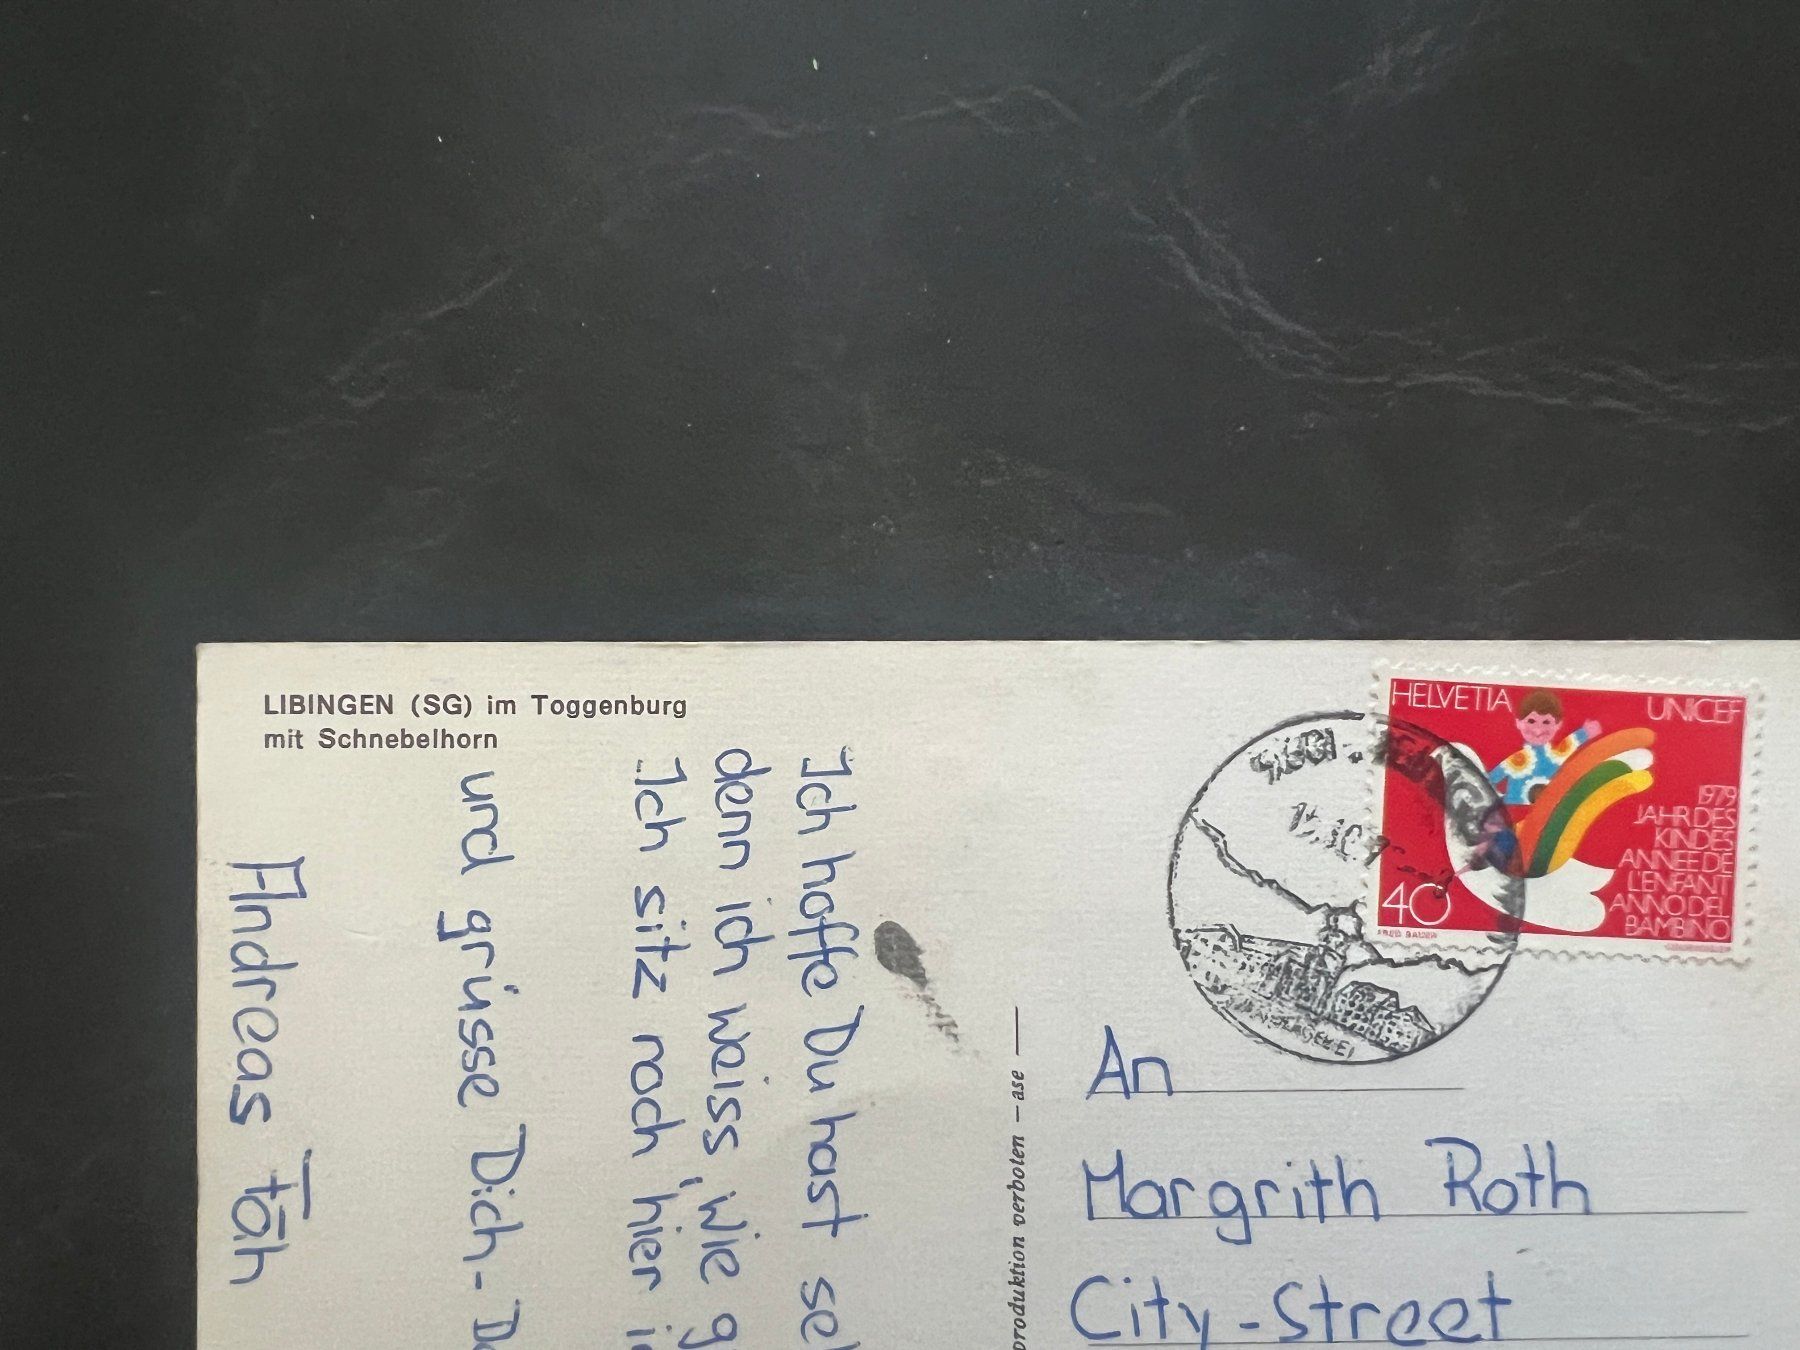 LIBINGEN (SG) im Toggenburg
mit Schnebelhorn
Ich hoffe Du hast
denn ich weiss, wie
Ich sitz noch hier
und grüsse Dich -
Andreas Täh
produktion verboten – ase
HELVETIA UNICEF
1979
JAHR DES
KINDES
ANNEE DE
L'ENFANT
ANNO DEL
BAMBINO
40
An
Margrith Roth
City-Street